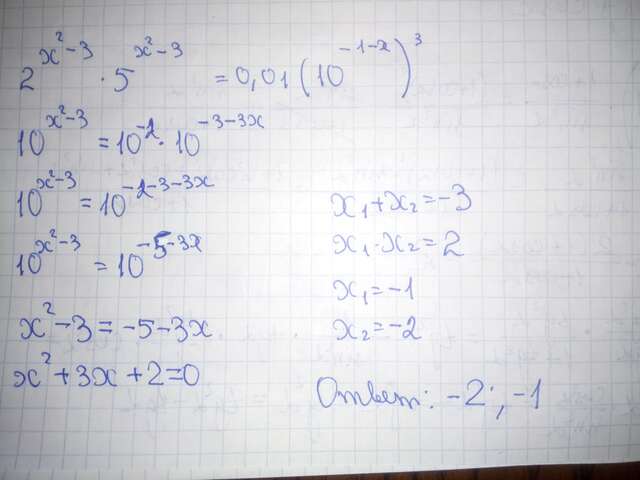 2^(x²-3) · 5^(x²-3) = 0,01 (10^(-1-x))³
10^(x²-3) = 10^(-2) · 10^(-3-3x)
10^(x²-3) = 10^(-2-3-3x)
10^(x²-3) = 10^(-5-3x)
x² - 3 = -5 - 3x
x² + 3x + 2 = 0
x₁ + x₂ = -3
x₁ · x₂ = 2
x₁ = -1
x₂ = -2
Ответ: -2; -1